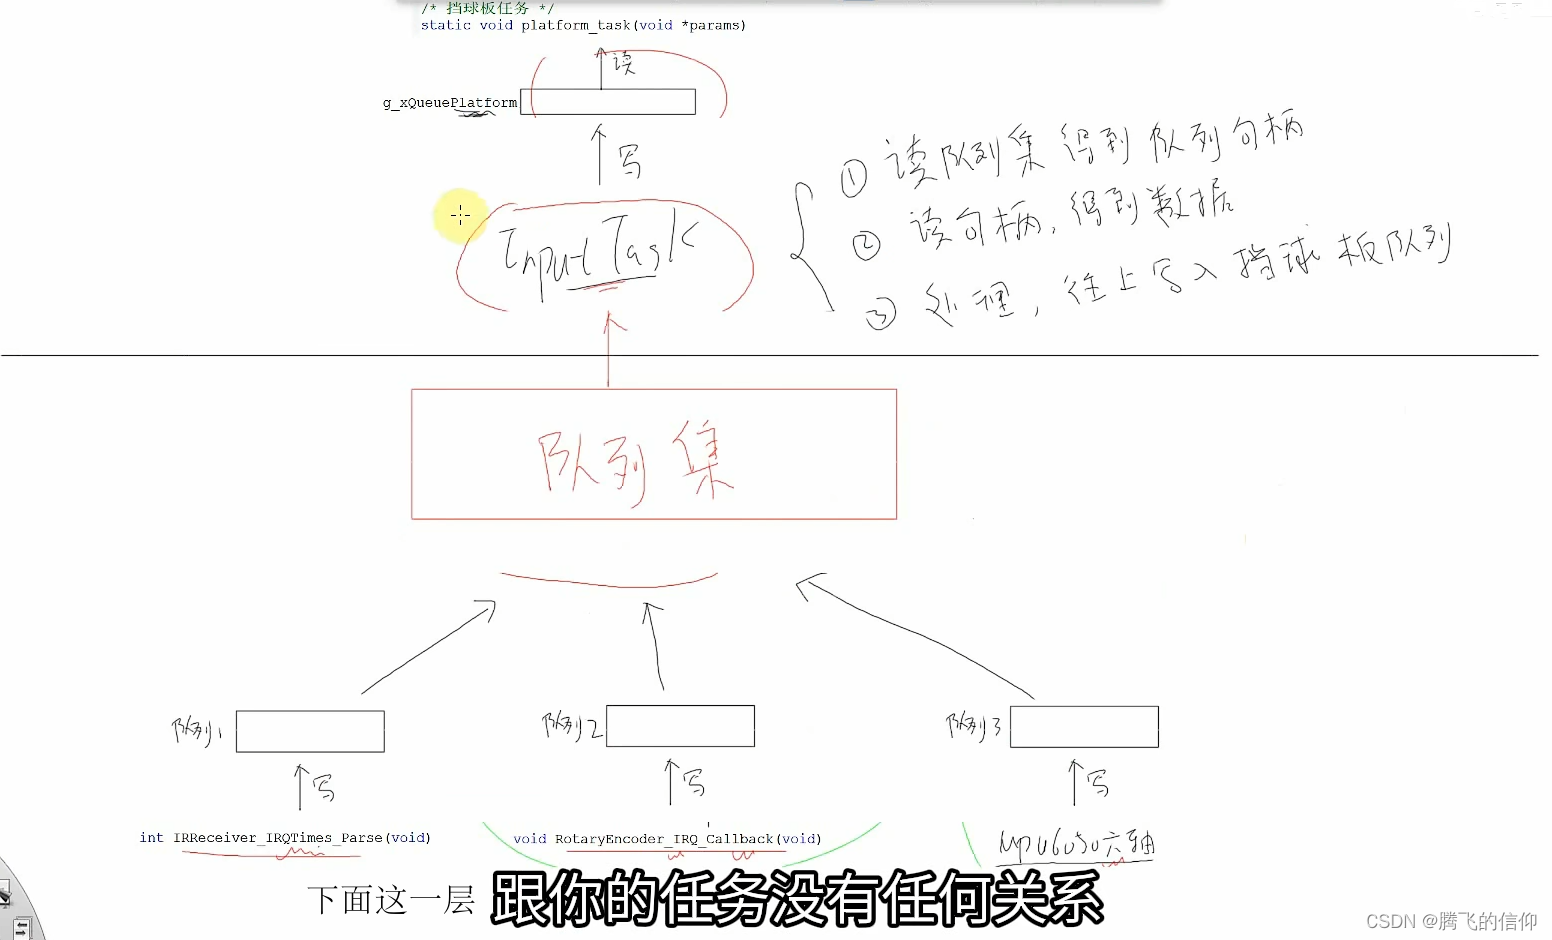 /* 挡球板任务 */
static void platform_task(void *params)
读
g_xQueuePlatform
写
Input Task
① 读队列集 得到 队列句柄
② 读句柄, 得到数据
③ 处理, 往上写入 挡球板队列
队列集
队列1
队列2
队列3
写
写
写
int IRReceiver_IRQTimes_Parse(void)
void RotaryEncoder_IRQ_Callback(void)
MPU6050六轴
下面这一层 跟你的任务没有任何关系
CSDN @腾飞的信仰